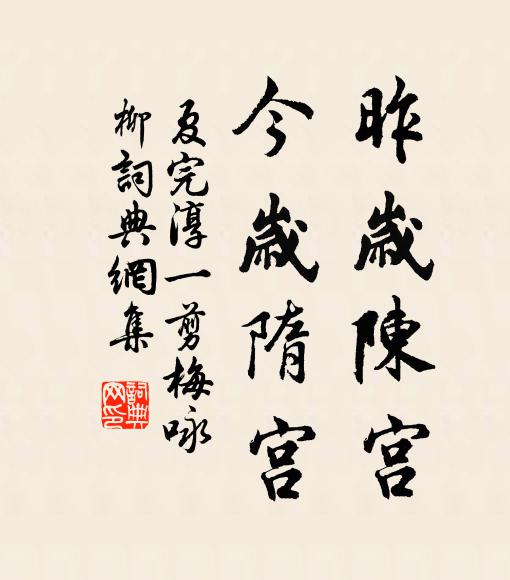 昨歲陳宮
今歲隋宮
夏完淳一剪梅咏
柳詞典網集
詞典網印